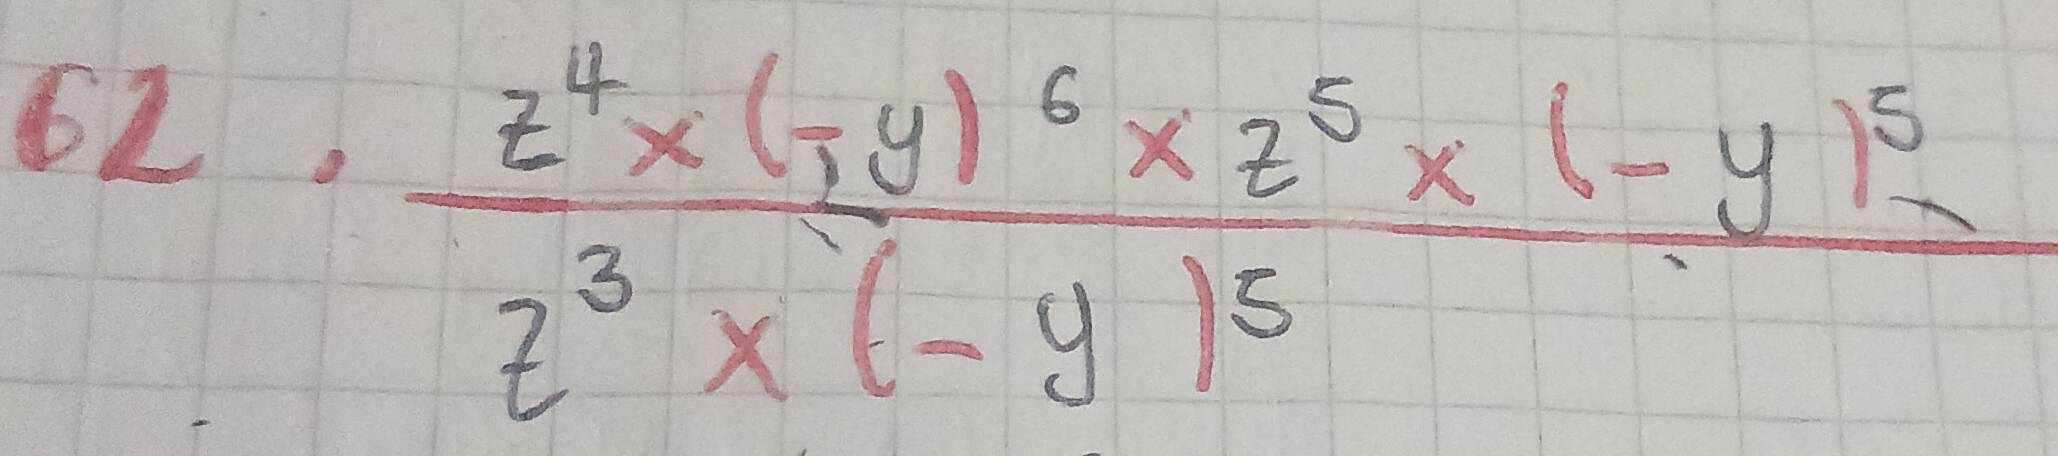 62. z⁴ × (-y)⁶ × z⁵ × (-y)⁵
z³ × (-y)⁵